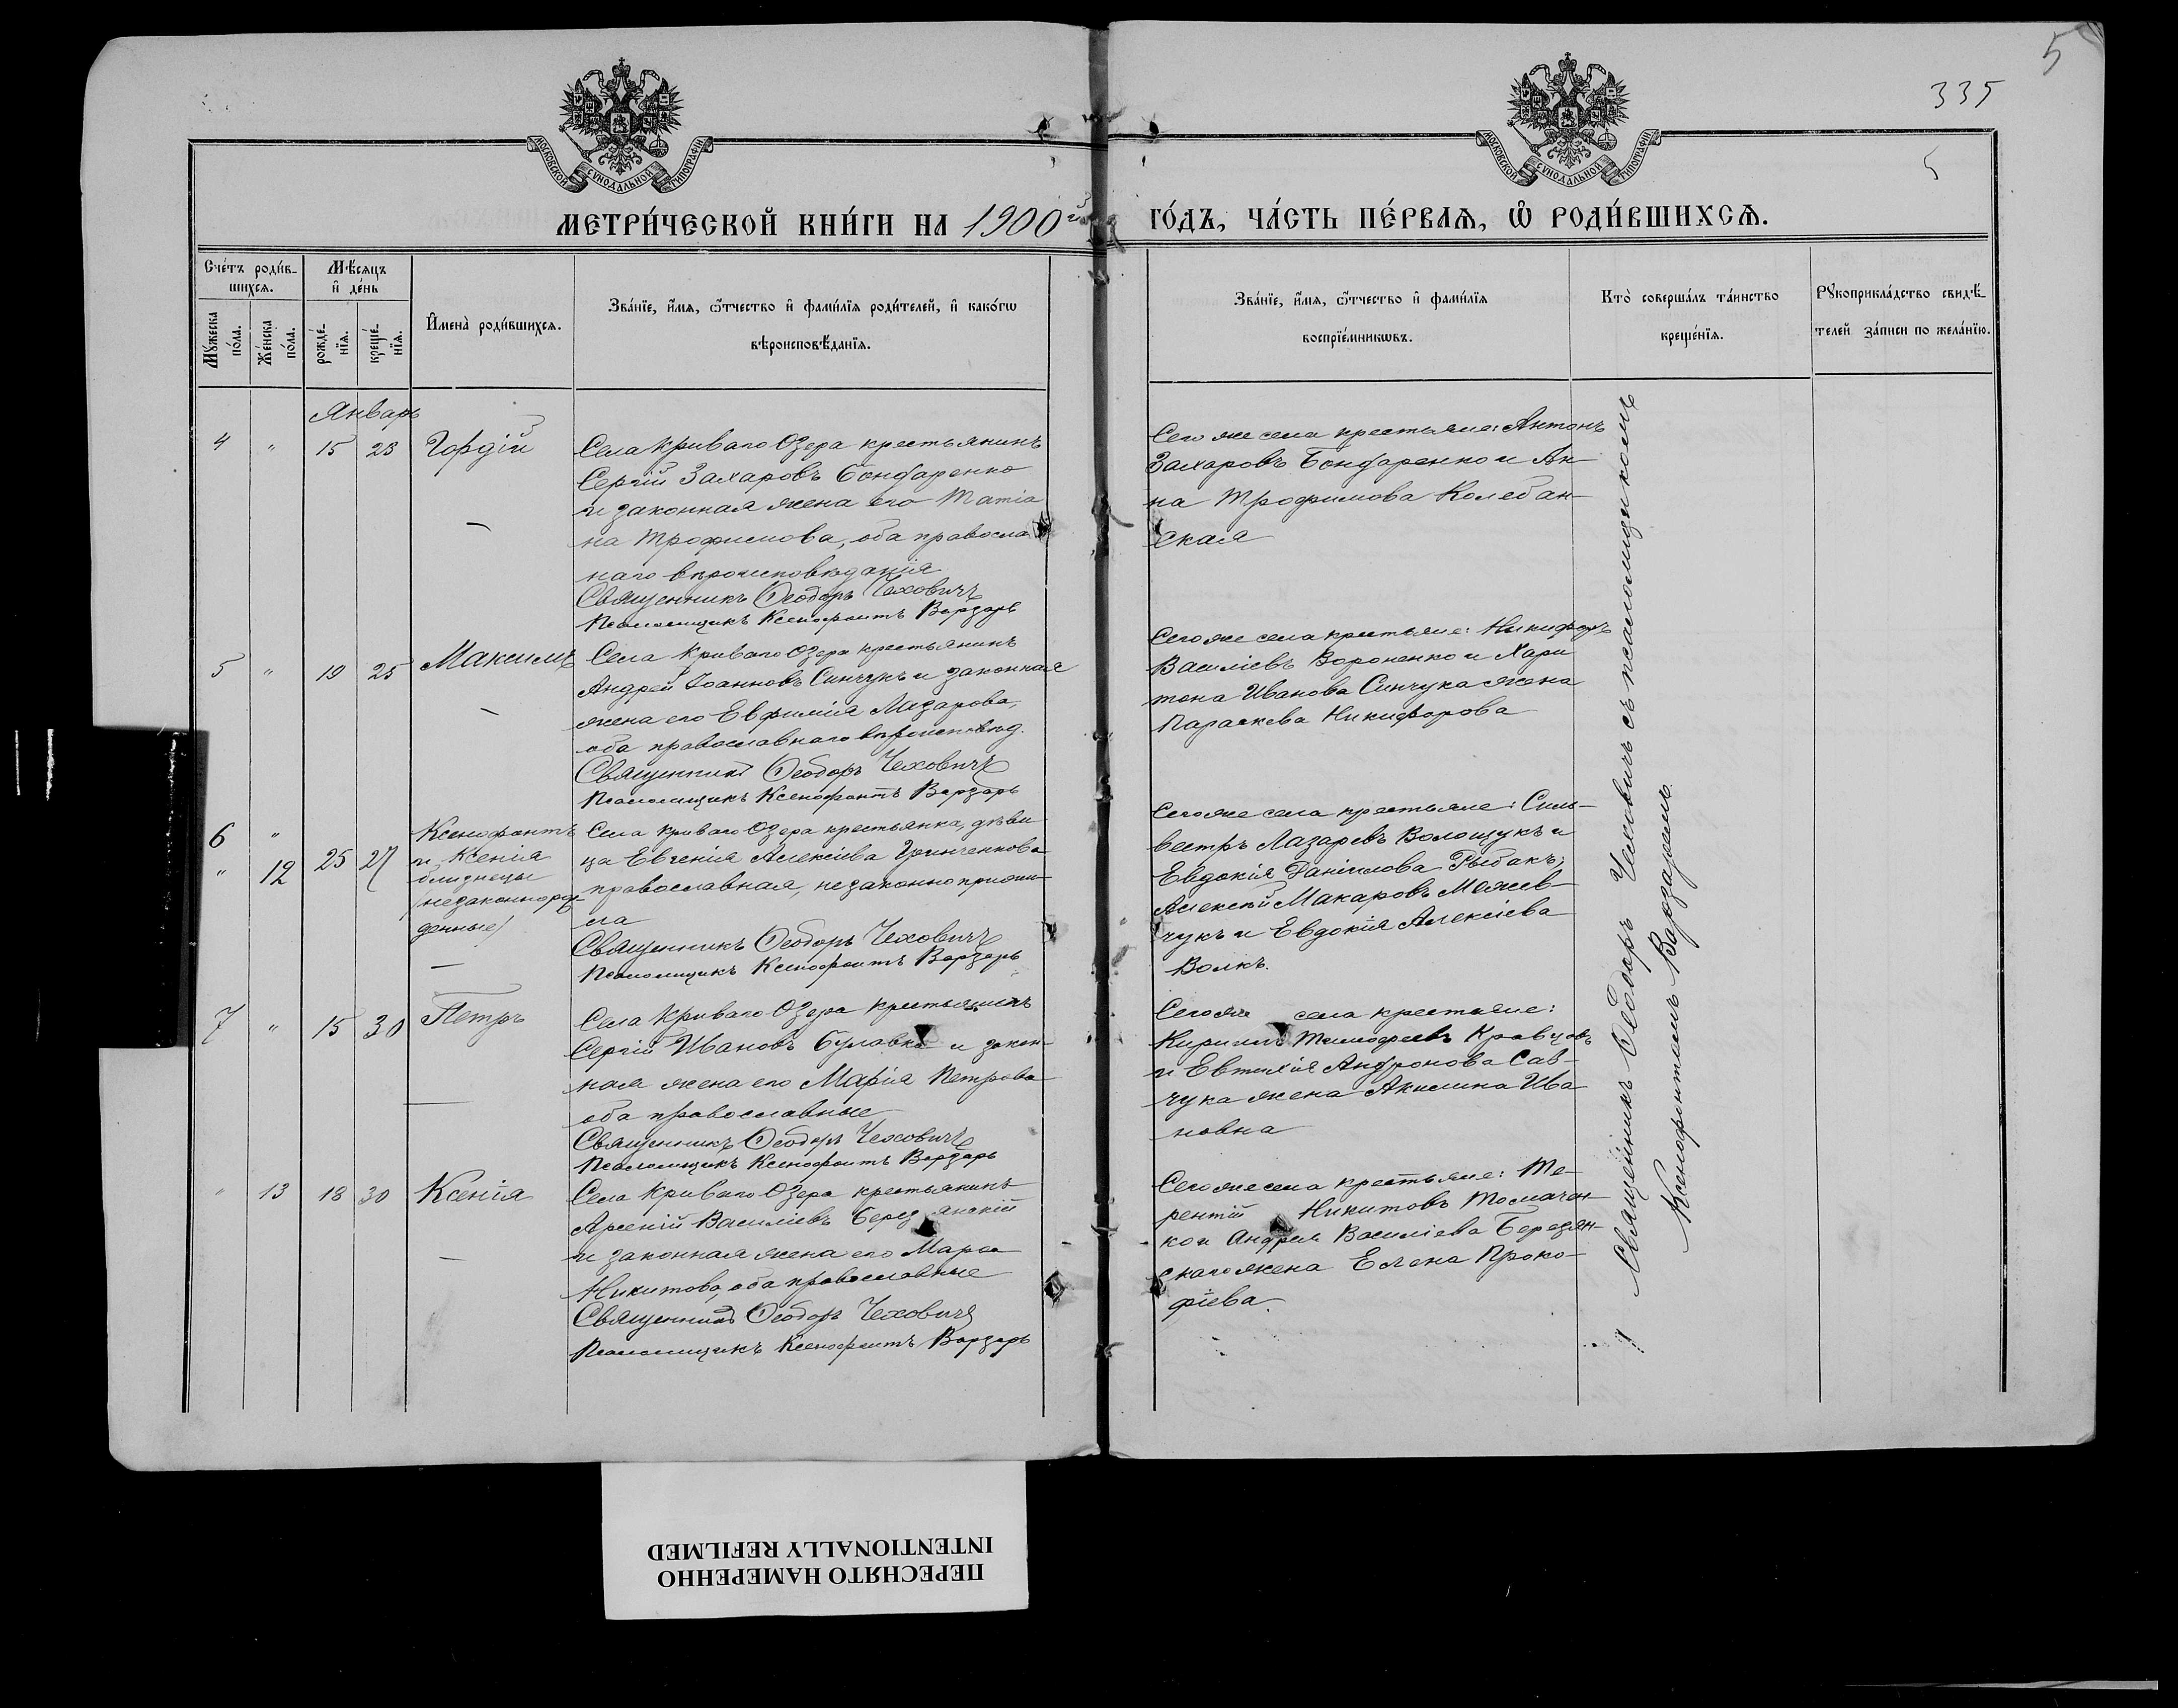 5
335
5
МОСКОВСКОЙ СУНОДАЛЬНОЙ ТИПОГРАФІИ
МОСКОВСКОЙ СУНОДАЛЬНОЙ ТИПОГРАФІИ
МЕТРИ́ЧЕСКОЙ КНИ́ГИ НА 1900й
ГО́ДЪ, ЧА́СТЬ ПЕ́РВАѦ, Ѽ РОДИ́ВШИХСѦ.
Сче́тъ роди́в-
шихсѧ.
Мѹ́жеска по́ла.
Же́нска по́ла.
Мѣ́сѧцъ
и҆ де́нь
рожде́-
нїѧ.
креще́-
нїѧ.
И҆мена̀ роди́вшихсѧ.
Зва́нїе, и҆́мѧ, ѻ҆́тчество и҆ фами́лїѧ роди́телей, и҆ како́гѡ
вѣроисповѣ́данїѧ.
Зва́нїе, и҆́мѧ, ѻ҆́тчество и҆ фами́лїѧ
воспрїе́мникѡвъ.
Кто̀ соверша́лъ та́инство
креще́нїѧ.
Рѹкоприкла́дство свидѣ́-
телей за́писи по жела́нїю.
Январь
4 " 15 23 Гордій
Села Криваго Озера крестьянинъ
Сергій Захаровъ Бондаренко
и законная жена его Татіа
на Трофимова, оба правосла
наго вѣроисповѣданія
Священникъ Ѳеодоръ Чеховичъ
Псаломщикъ Ксенофонтъ Варзарь
Сего же села крестьяне: Антонъ
Захаровъ Бондаренко и Ан-
на Трофимова Колебан-
ская
5 " 19 25 Максимъ
Села Криваго Озера крестьянинъ
Андрей Іоанновъ Синчукъ и законная
жена его Евфимія Лазарова,
оба православнаго вѣроисповѣд.
Священникъ Ѳеодоръ Чеховичъ
Псаломщикъ Ксенофонтъ Варзарь
Сего же села крестьяне: Никифоръ
Василіевъ Вороненко и Хари
тона Иванова Синчука жена
Параскева Никифорова
6 "
" 12 25 27
Ксенофонтъ
и Ксенія
близнецы
(незаконнорож-
денные)
Села Криваго Озера крестьянка, дѣви
ца Евгенія Алексіева Гринченкова
православная, незаконно прижи-
ла
Священникъ Ѳеодоръ Чеховичъ
Псаломщикъ Ксенофонтъ Варзарь
Сего же села крестьяне: Силь-
вестръ Лазаревъ Волощукъ и
Евдокія Даніилова Рыбакъ;
Алексѣй Макаровъ
чукъ и Евдокія Алексіева
Волкъ.
7 " 15 30 Петръ
Села Криваго Озера крестьянинъ
Сергій Ивановъ Булавка и закон-
ная жена его Марія Петрова
оба православные
Священникъ Ѳеодоръ Чеховичъ
Псаломщикъ Ксенофонтъ Варзарь
Сего же села крестьяне:
Кириллъ Тимофеевъ Кравцовъ
и Евтихія Андронова Сав-
чука жена Акилина Ива
новна
" 13 18 30 Ксенія
Села Криваго Озера крестьянинъ
Арсеній Василіевъ Березанскій
и законная жена его
Никитова, оба православные
Священникъ Ѳеодоръ Чеховичъ
Псаломщикъ Ксенофонтъ Варзарь
Сего же села крестьяне: Те-
рентій Никитовъ Толмачен-
ко и Андрея Василіева Березан-
скаго жена Елена Проко-
фіева.
Священникъ Ѳеодоръ Чеховичъ съ псаломщикомъ
Ксенофонтомъ Варзаремъ.
ПЕРЕСНЯТО НАМЕРЕННО
INTENTIONALLY REFILMED